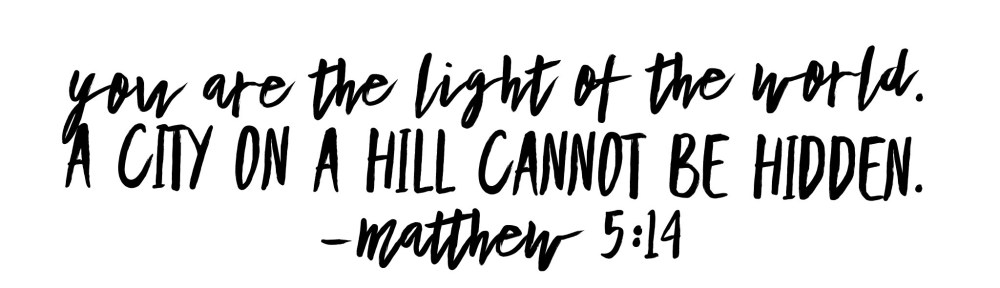 you are the light of the world.
A CITY ON A HILL CANNOT BE HIDDEN.
-matthew 5:14